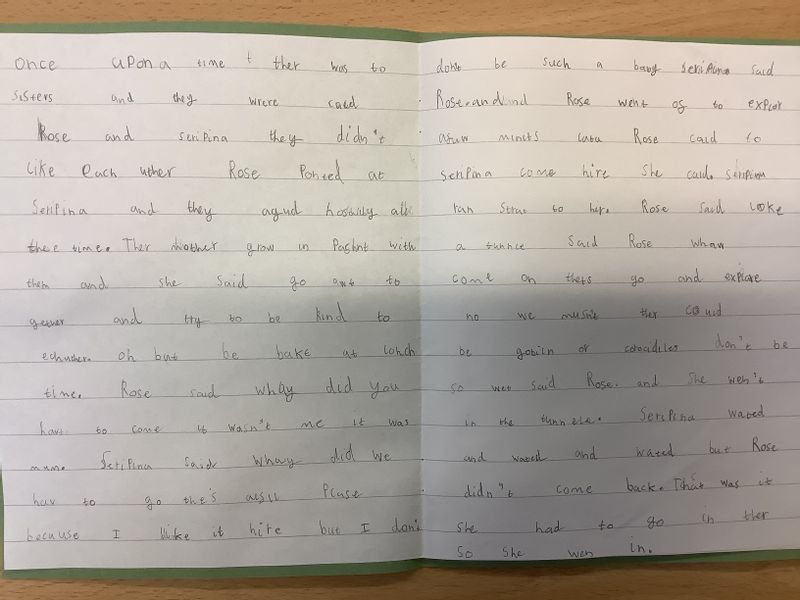 Once upon a time ther was to
sisters and they wrere cald
Rose and seripina they didn't
like each uther Rose Ponted at
Seripina and they agud hostily all
thee time. Ther mother grow in Pashnt with
them and she said go awt to
gether and try to be kind to
echuther. oh but be bake at lonch
time. Rose said whay did you
hav to come it wasn't me it was
mum. Seripina Said Whay did we
hav to go the's Plase
because I like it hire but I don't
dont be such a baby seripina said
Rose. and Rose went of to explor
afuw minits lata Rose cald to
seripina come hire she cald. seripina
ran strat to her. Rose said looke
a tunnle Said Rose whaw
come on thets go and explore
no we musn't ther coud
be goblin or corocidiles don't be
so wet said Rose. and she wen't
in the tunnele. Seripina wated
and wated and wated but Rose
didn't come back. That was it
she had to go in ther
So she wen in.